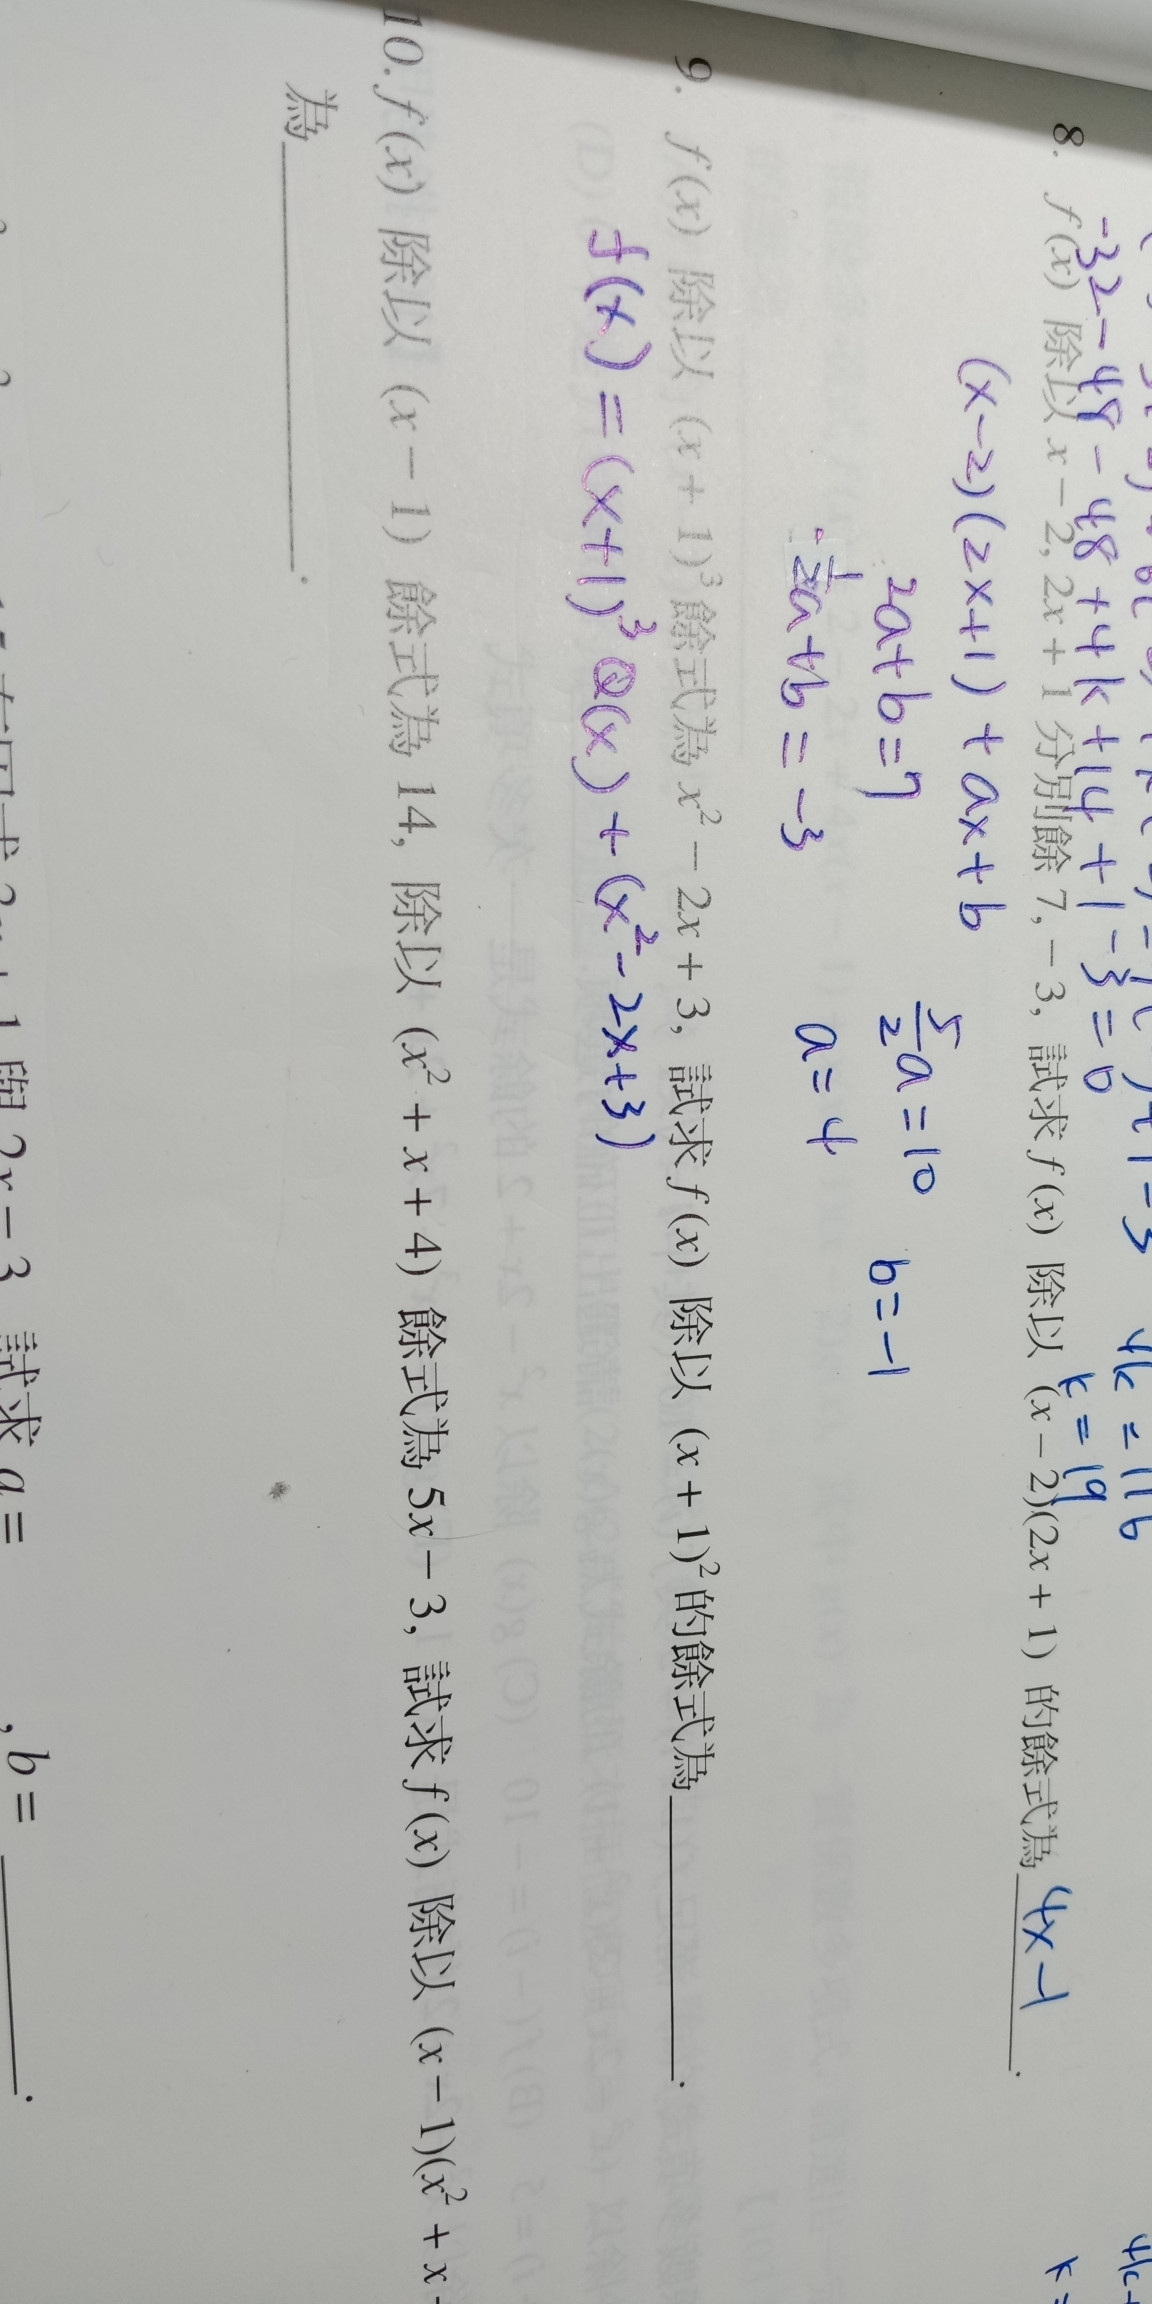 -32-48-48+4k+14+1-3=0
4k=116
k=19
8. f(x) 除以 x-2, 2x+1 分別餘 7, -3, 試求 f(x) 除以 (x-2)(2x+1) 的餘式為 4x-1.
(x-2)(2x+1)+ax+b
2a+b=7
-1/2a+b=-3
5/2a=10
a=4
b=-1
9. f(x) 除以 (x+1)³ 餘式為 x²-2x+3, 試求 f(x) 除以 (x+1)² 的餘式為________.
f(x)=(x+1)³Q(x)+(x²-2x+3)
10. f(x) 除以 (x-1) 餘式為 14, 除以 (x²+x+4) 餘式為 5x-3, 試求 f(x) 除以 (x-1)(x²+x
為________.
1 與 2x-3 試求 a= , b=________.